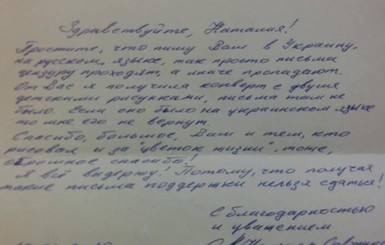 Здравствуйте, Наталия!
Простите, что пишу Вам в Украину,
на русском языке, так просто письма
цензуру проходят, а иначе пропадают.
От Вас я получила конверт с двумя
детскими рисунками, письма там не
было. Если оно было на украинском языке
то мне его не вернут.
Спасибо, большое, Вам и тем, кто
рисовал и за "цветок жизни", тоже,
огромное спасибо!
Я всё выдержу! Потому, что получая
такие письма поддержки нельзя сдаться!
С благодарностью
и уважением